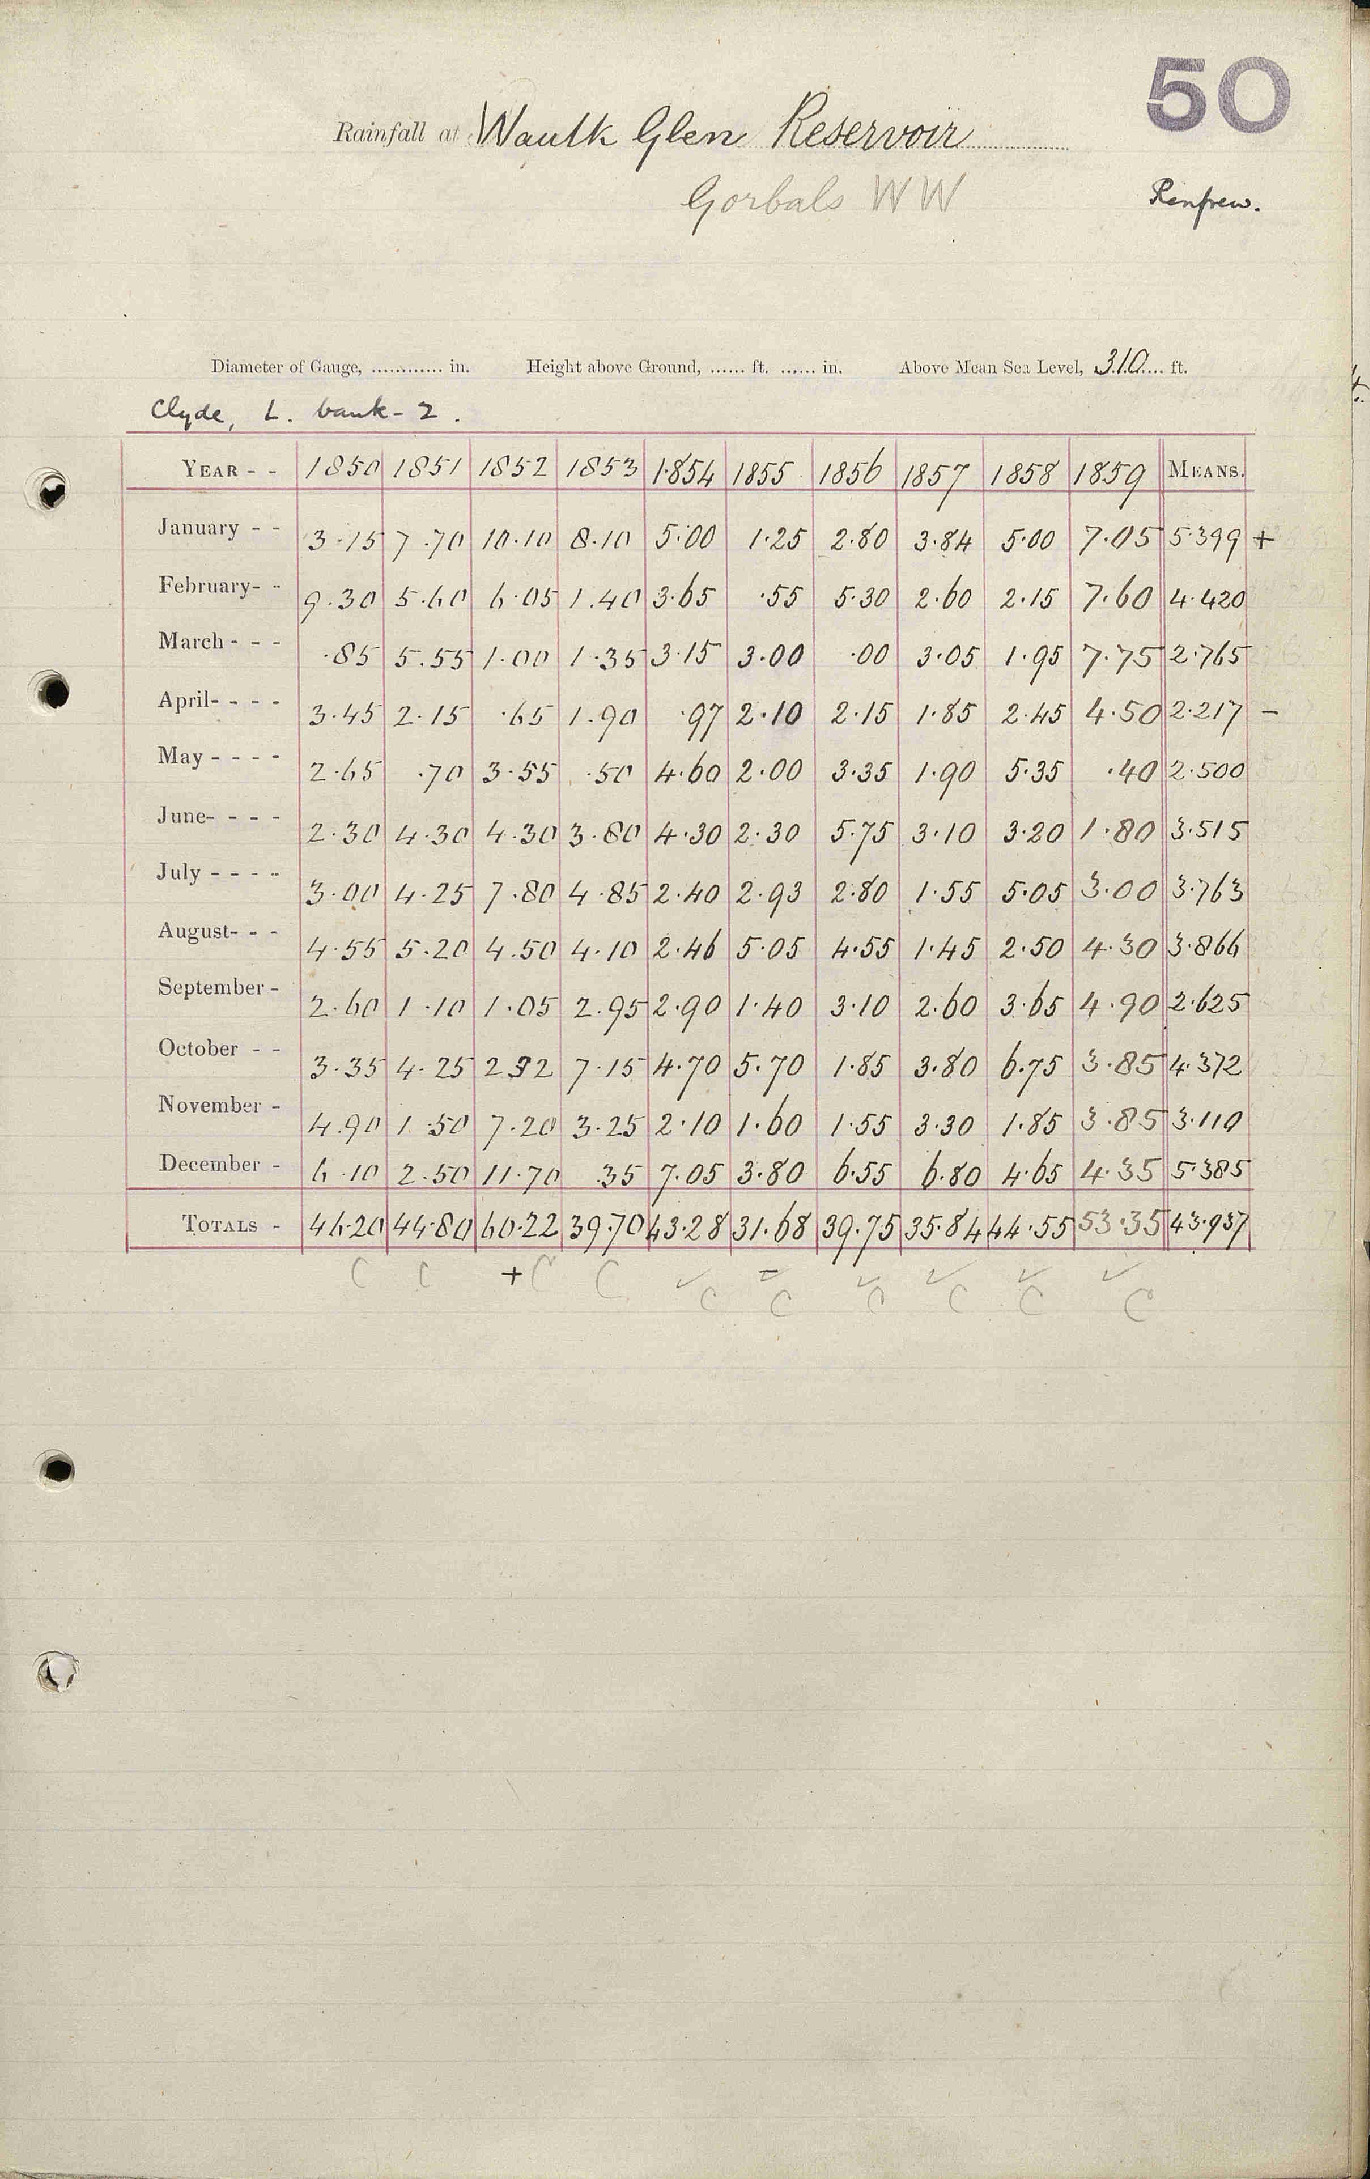 50
Rainfall at Waulk Glen Reservoir
Gorbals W W
Renfrew.
Diameter of Gauge, ............ in. Height above Ground, ...... ft. ...... in. Above Mean Sea Level, 310 ft.
Clyde, L. bank - 2.
YEAR - - 1850 1851 1852 1853 1854 1855 1856 1857 1858 1859 MEANS.
January - - 3.15 7.70 10.10 8.10 5.00 1.25 2.80 3.84 5.00 7.05 5.399 +
February - - 9.30 5.60 6.05 1.40 3.65 .55 5.30 2.60 2.15 7.60 4.420
March - - - .85 5.55 1.00 1.35 3.15 3.00 .00 3.05 1.95 7.75 2.765
April - - - - 3.45 2.15 .65 1.90 .97 2.10 2.15 1.85 2.45 4.50 2.217 -
May - - - - 2.65 .70 3.55 .50 4.60 2.00 3.35 1.90 5.35 .40 2.500
June - - - - 2.30 4.30 4.30 3.80 4.30 2.30 5.75 3.10 3.20 1.80 3.515
July - - - - 3.00 4.25 7.80 4.85 2.40 2.93 2.80 1.55 5.05 3.00 3.763
August - - - 4.55 5.20 4.50 4.10 2.46 5.05 4.55 1.45 2.50 4.30 3.866
September - 2.60 1.10 1.05 2.95 2.90 1.40 3.10 2.60 3.65 4.90 2.625
October - - 3.35 4.25 2.32 7.15 4.70 5.70 1.85 3.80 6.75 3.85 4.372
November - 4.90 1.50 7.20 3.25 2.10 1.60 1.55 3.30 1.85 3.85 3.110
December - 6.10 2.50 11.70 .35 7.05 3.80 6.55 6.80 4.65 4.35 5.385
TOTALS - 46.20 44.80 60.22 39.70 43.28 31.68 39.75 35.84 44.55 53.35 43.937
C C + C C ✓ C - C ✓ C ✓ C ✓ C ✓ C